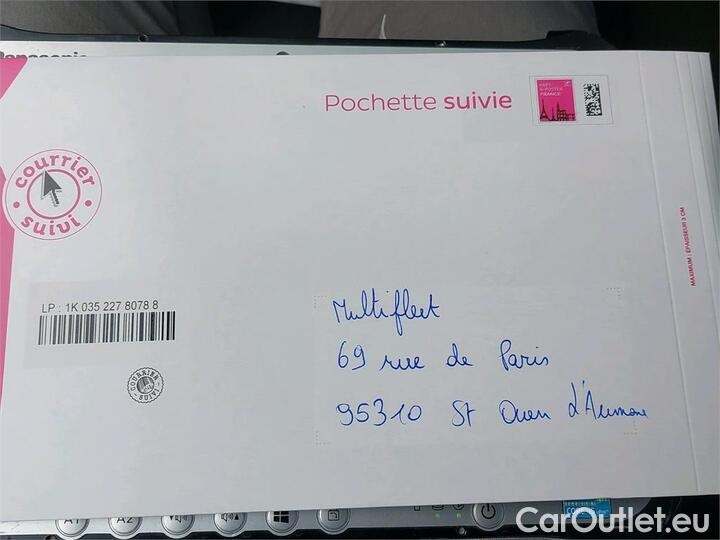 Panasonic
Pochette suivie
PRÊT
À POSTER
FRANCE
courrier
suivi
MAXIMUM : ÉPAISSEUR 3 CM
LP : 1K 035 227 8078 8
Multifleet
69 rue de Paris
95310 St Ouen L'Aumone
COURRIER
SUIVI
A1
A2
CarOutlet.eu